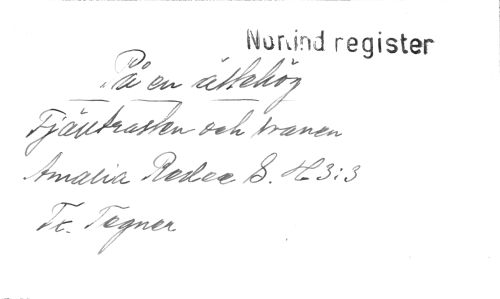 Norlind register
På en ättehög
Fjällrasken och tranen
Amalia Redec S. H 3:3
Fr. Tegner